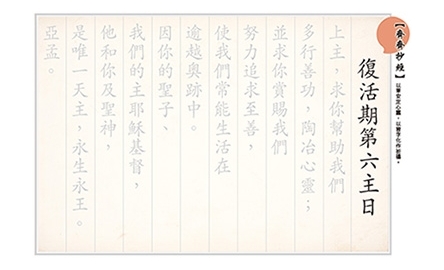 【齊齊抄經】
以筆安定心靈，以寫字化作祈禱。
復活期第六主日
上主，求你幫助我們
多行善功，陶冶心靈；
並求你賞賜我們
努力追求至善，
使我們常能生活在
逾越奧跡中。
因你的聖子、
我們的主耶穌基督，
他和你及聖神，
是唯一天主，永生永王。
亞孟。